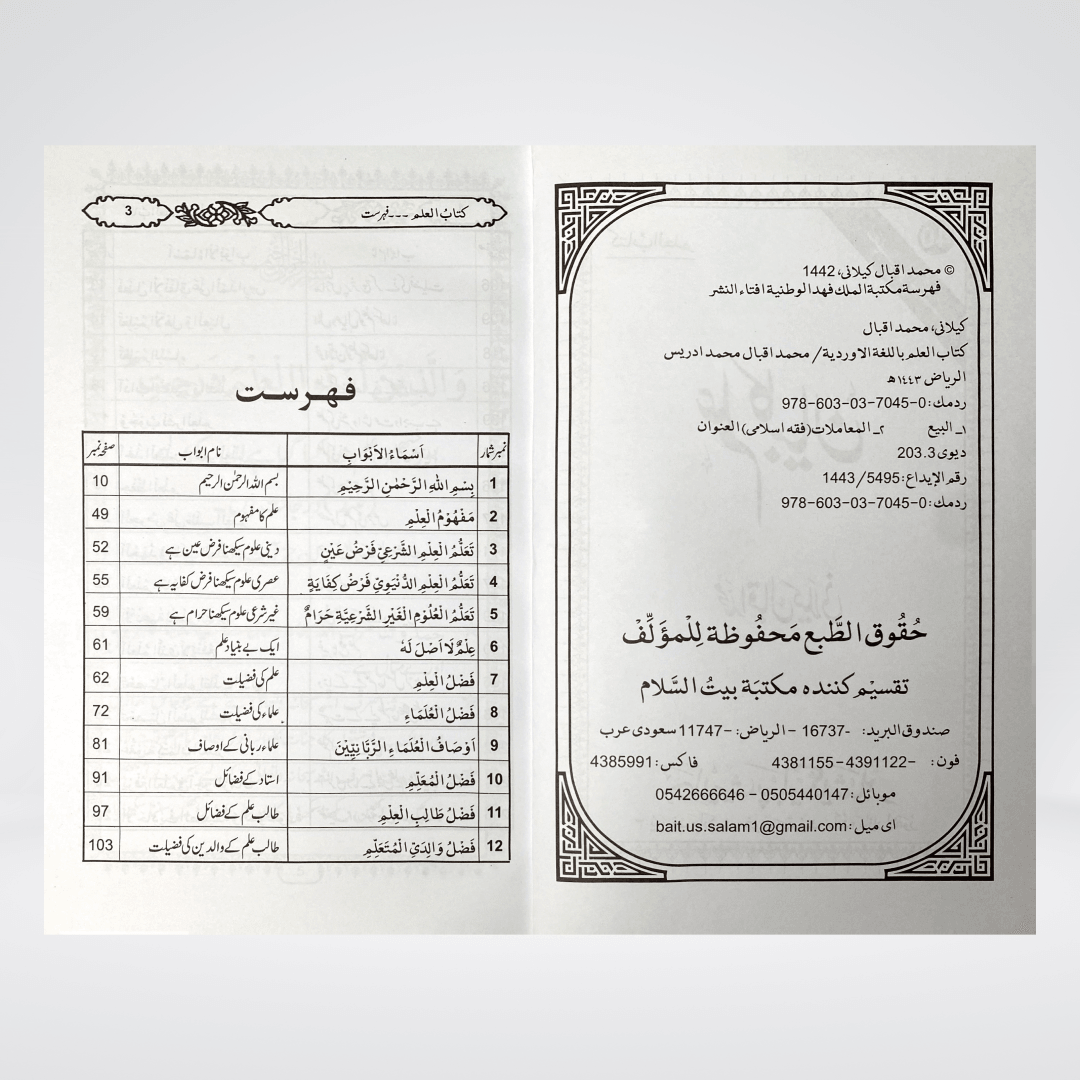 © محمد اقبال كيلانى، 1442
فهرسة مكتبة الملك فهد الوطنية افتاء النشر
كيلانى، محمد اقبال
كتاب العلم باللغة الاوردية/ محمد اقبال محمد ادريس
الرياض ١٤٤٣ھ
ردمك: 0-7045-03-603-978
١ـ البيع ٢ـ المعاملات (فقه اسلامى) العنوان
ديوى 203.3
رقم الإيداع: 1443/5495
ردمك: 0-7045-03-603-978
حُقُوق الطَّبع مَحفُوظة لِلْمؤَلِّفْ
تقسیم کنندہ مكتبَة بيتُ السَّلام
صندوق البريد: -16737 - الرياض: -11747 سعودی عرب
فون: -4391122 - 4381155 فاکس: 4385991
موبائل: 0505440147 - 0542666646
ای میل: bait.us.salam1@gmail.com
کتابُ العلم ۔۔۔ فہرست 3
فهرست
نمبر شمار اَسْمَاءُ الْاَبْوَابِ نام ابواب صفحہ نمبر
1 بِسْمِ اللهِ الرَّحْمٰنِ الرَّحِيْمِ بسم اللہ الرحمٰن الرحیم 10
2 مَفْهُوْمُ الْعِلْمِ علم کا مفہوم 49
3 تَعَلُّمُ الْعِلْمِ الشَّرْعِيِّ فَرْضُ عَيْنٍ دینی علوم سیکھنا فرض عین ہے 52
4 تَعَلُّمُ الْعِلْمِ الدُّنْيَوِيِّ فَرْضُ كِفَايَةٍ عصری علوم سیکھنا فرض کفایہ ہے 55
5 تَعَلُّمُ الْعُلُوْمِ الْغَيْرِ الشَّرْعِيَّةِ حَرَامٌ غیر شرعی علوم سیکھنا حرام ہے 59
6 عِلْمٌ لَا اَصْلَ لَهٗ ایک بے بنیاد علم 61
7 فَضْلُ الْعِلْمِ علم کی فضیلت 62
8 فَضْلُ الْعُلَمَاءِ علماء کی فضیلت 72
9 اَوْصَافُ الْعُلَمَاءِ الرَّبَّانِيِّيْنَ علماء ربانی کے اوصاف 81
10 فَضْلُ الْمُعَلِّمِ استاد کے فضائل 91
11 فَضْلُ طَالِبِ الْعِلْمِ طالب علم کے فضائل 97
12 فَضْلُ وَالِدَيِ الْمُتَعَلِّمِ طالب علم کے والدین کی فضیلت 103